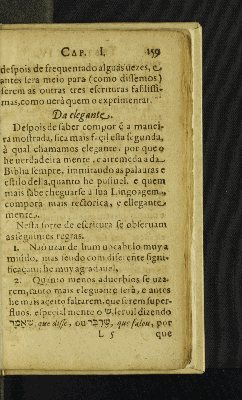 CAP. I. 159
despois de frequentado alguãs vezes, e
antes sera meio para (como dissemos)
serem as outras tres escrituras facilissi-
mas, como uerá quem o exprimentar.
Da elegante.
Despois de saber compor é a manei-
ra mostrada, fica mais facil esta segunda,
à qual chamamos elegante, por que o
he verdadeira mente, e arremeda a da
Biblia sempre, immitando as palauras e
estilo della, quanto he possiuel, e quem
mais sabe chegarse à sua Lingoagem,
compora mais rectorica, e ellegante
mente.
Nesta sorte de escritura se obseruam
as seguintes regras.
1. Nõ usar de hum uocabolo muy a
miudo, mas sendo com diferente signi-
ficaçam; he muy agradauel,
2. Quanto menos aduerbios se uza-
rem, tanto mais eleguante sera, e antes
he mais aceito faltarem, que serem super-
fluos, especial mente o ש, seruil dizendo
שאמר, que disse, ou שדבר, que falou, por
L 5 que